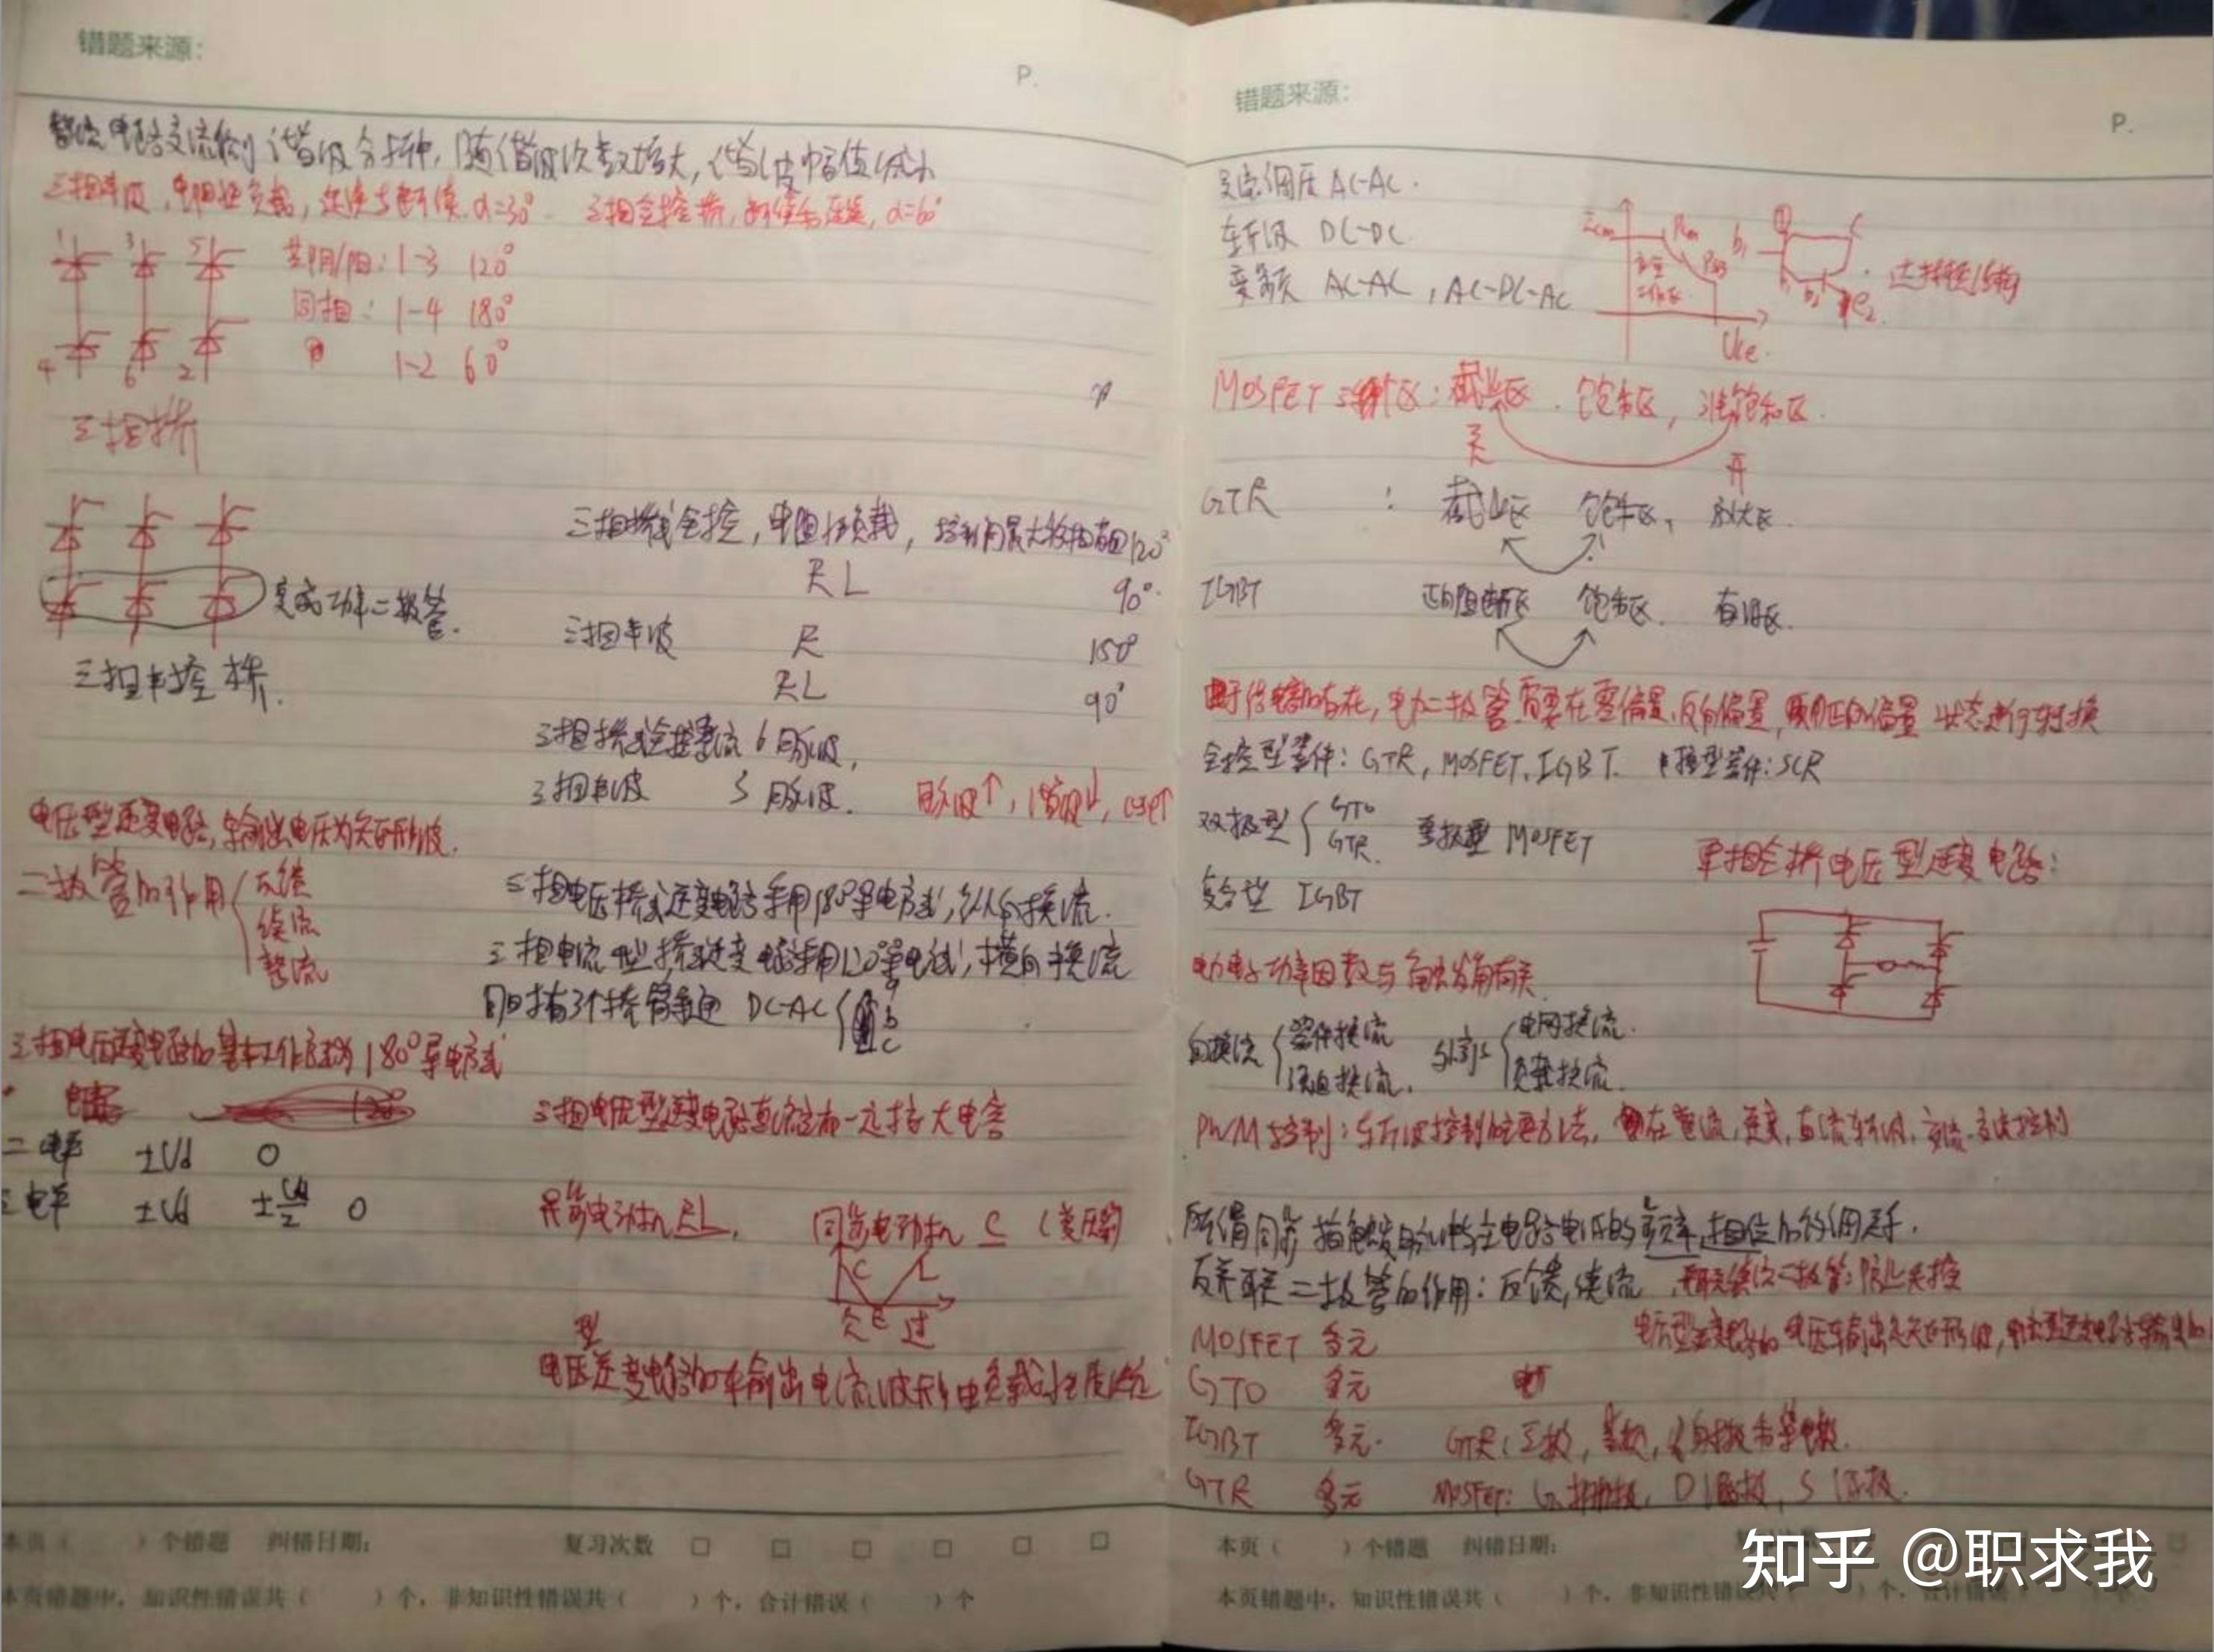 错题来源:
P.
整流电路交流侧谐波分析中,随谐波次数增大,谐波幅值减小
三相半波,电阻性负载,连续与断续 α=30° 三相全控桥,断续与连续,α=60°
1 3 5
共阴/阳:1-3 120°
同相:1-4 180°
1-2 60°
4 6 2
三相桥
三相桥式全控,电阻性负载,控制角最大移相范围120°
RL 90°
变成功率二极管.
三相半波 R 150°
RL 90°
三相半控桥.
三相桥式全控整流 6脉波,
三相半波 3脉波. 脉波↑,谐波↓,cosφ↑
电压型逆变电路,输出电压为矩形波.
二极管的作用 反馈
续流
整流
三相电压桥式逆变电路采用180°导电方式,纵向换流.
三相电流型桥式逆变电路采用120°导电方式,横向换流
同时有3个桥臂导通 DC-AC a
b
c
三相电压逆变电路的基本工作方式为180°导电方式
三相电压型逆变电路直流侧一定接大电容
二电平 ±Ud 0
三电平 ±Ud ±Ud/2 0
异步电动机 RL. 同步电动机 C (变压器)
C L
欠 E 过
电压型逆变电路的输出电流波形由负载性质决定
错题来源:
P.
交流调压 AC-AC.
斩波 DC-DC
变频 AC-AC , AC-DC-AC
Icm
Pcm
PSB
安全
工作区
Uce.
b1 C
b2 e2
达林顿结构
MOSFET 三个区:截止区. 饱和区, 非饱和区.
关 开
GTR : 截止区 饱和区, 放大区.
IGBT 正向阻断区 饱和区. 有源区.
由于结电容的存在,电力二极管需要在零偏置、反向偏置,正向偏置状态进行转换
全控型器件:GTR, MOSFET, IGBT. 半控型器件:SCR
双极型 GTO
GTR. 单极型 MOSFET
单相全桥电压型逆变电路:
复合型 IGBT
电力电子功率因数与触发角有关
自换流 器件换流
强迫换流. 外部 电网换流.
负载换流.
PWM控制:斩波控制的主要方法, 在整流,逆变,直流斩波,交流-交流控制
所谓同步指触发脉冲与主电路电压的频率,相位的协调关系.
反并联二极管的作用:反馈,续流 并联续流二极管:防止失控
MOSFET 多元
GTO 多元
IGBT 多元. GTR:基极, 集电极, 发射极
GTR 多元 MOSFET: G 栅极, D 漏极, S 源极.
本页( )个错题 纠错日期: 复习次数 □ □ □ □ □ □
本页错题中,知识性错误共( )个,非知识性错误共( )个,合计错误( )个
本页( )个错题 纠错日期:
本页错题中,知识性错误共( )个,非知识性错误共( )个,合计错误(
知乎 @职求我